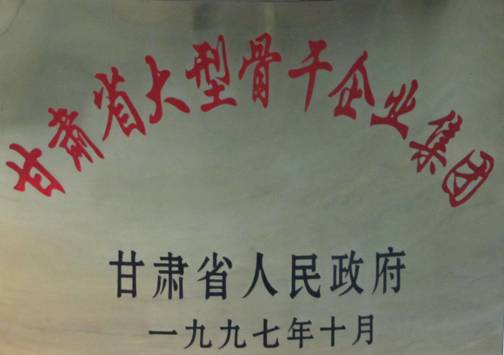 甘肃省大型骨干企业集团
甘肃省人民政府
一九九七年十月